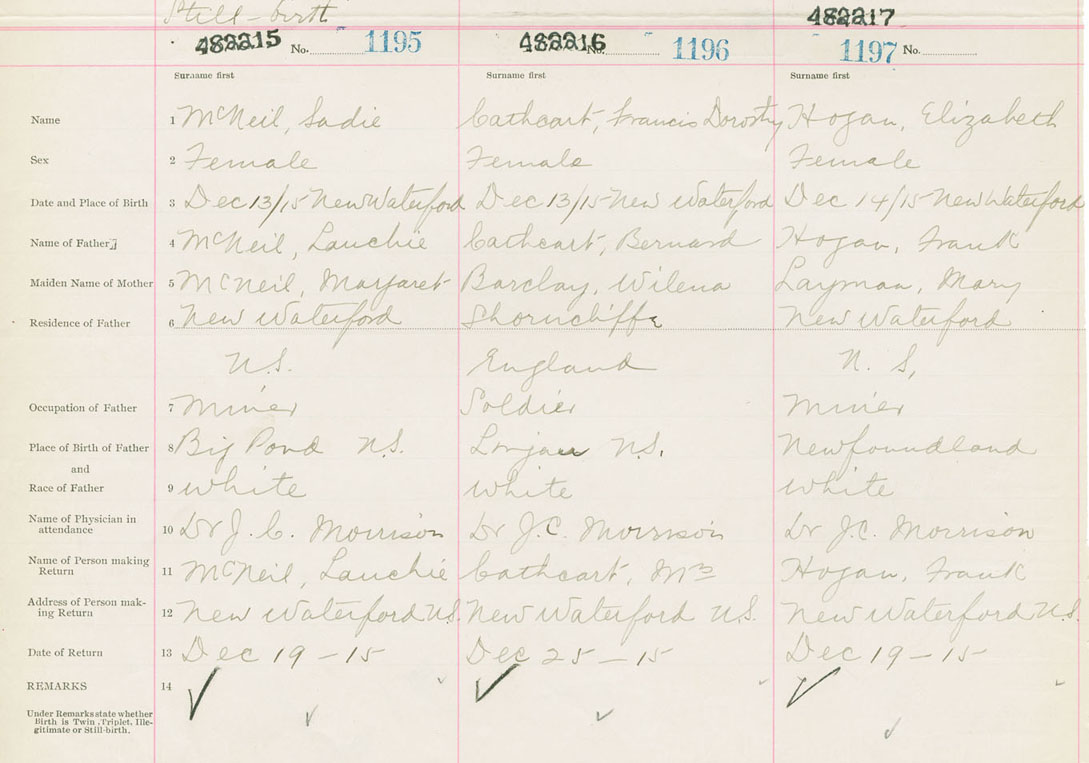 Still-birth
482215 No. 1195 482216 No. 1196 482217 1197 No.
Surname first Surname first Surname first
Name 1 McNeil, Sadie Cathcart, Francis Dorothy Hogan, Elizabeth
Sex 2 Female Female Female
Date and Place of Birth 3 Dec 13/15 New Waterford Dec 13/15 New Waterford Dec 14/15 New Waterford
Name of Father 4 McNeil, Lauchie Cathcart, Bernard Hogan, Frank
Maiden Name of Mother 5 McNeil, Margaret Barclay, Wilena Layman, Mary
Residence of Father 6 New Waterford Shorncliffe New Waterford
N.S. England N. S.
Occupation of Father 7 Miner Soldier Miner
Place of Birth of Father 8 Big Pond N.S. N.S. Newfoundland
and
Race of Father 9 White White White
Name of Physician in
attendance 10 Dr J. C. Morrison Dr J.C. Morrison Dr J.C. Morrison
Name of Person making
Return 11 McNeil, Lauchie Cathcart, Mrs Hogan, Frank
Address of Person mak-
ing Return 12 New Waterford N.S. New Waterford N.S. New Waterford N.S.
Date of Return 13 Dec 19-15 Dec 25-15 Dec 19-15
REMARKS 14
Under Remarks state whether
Birth is Twin, Triplet, Ille-
gitimate or Still-birth.